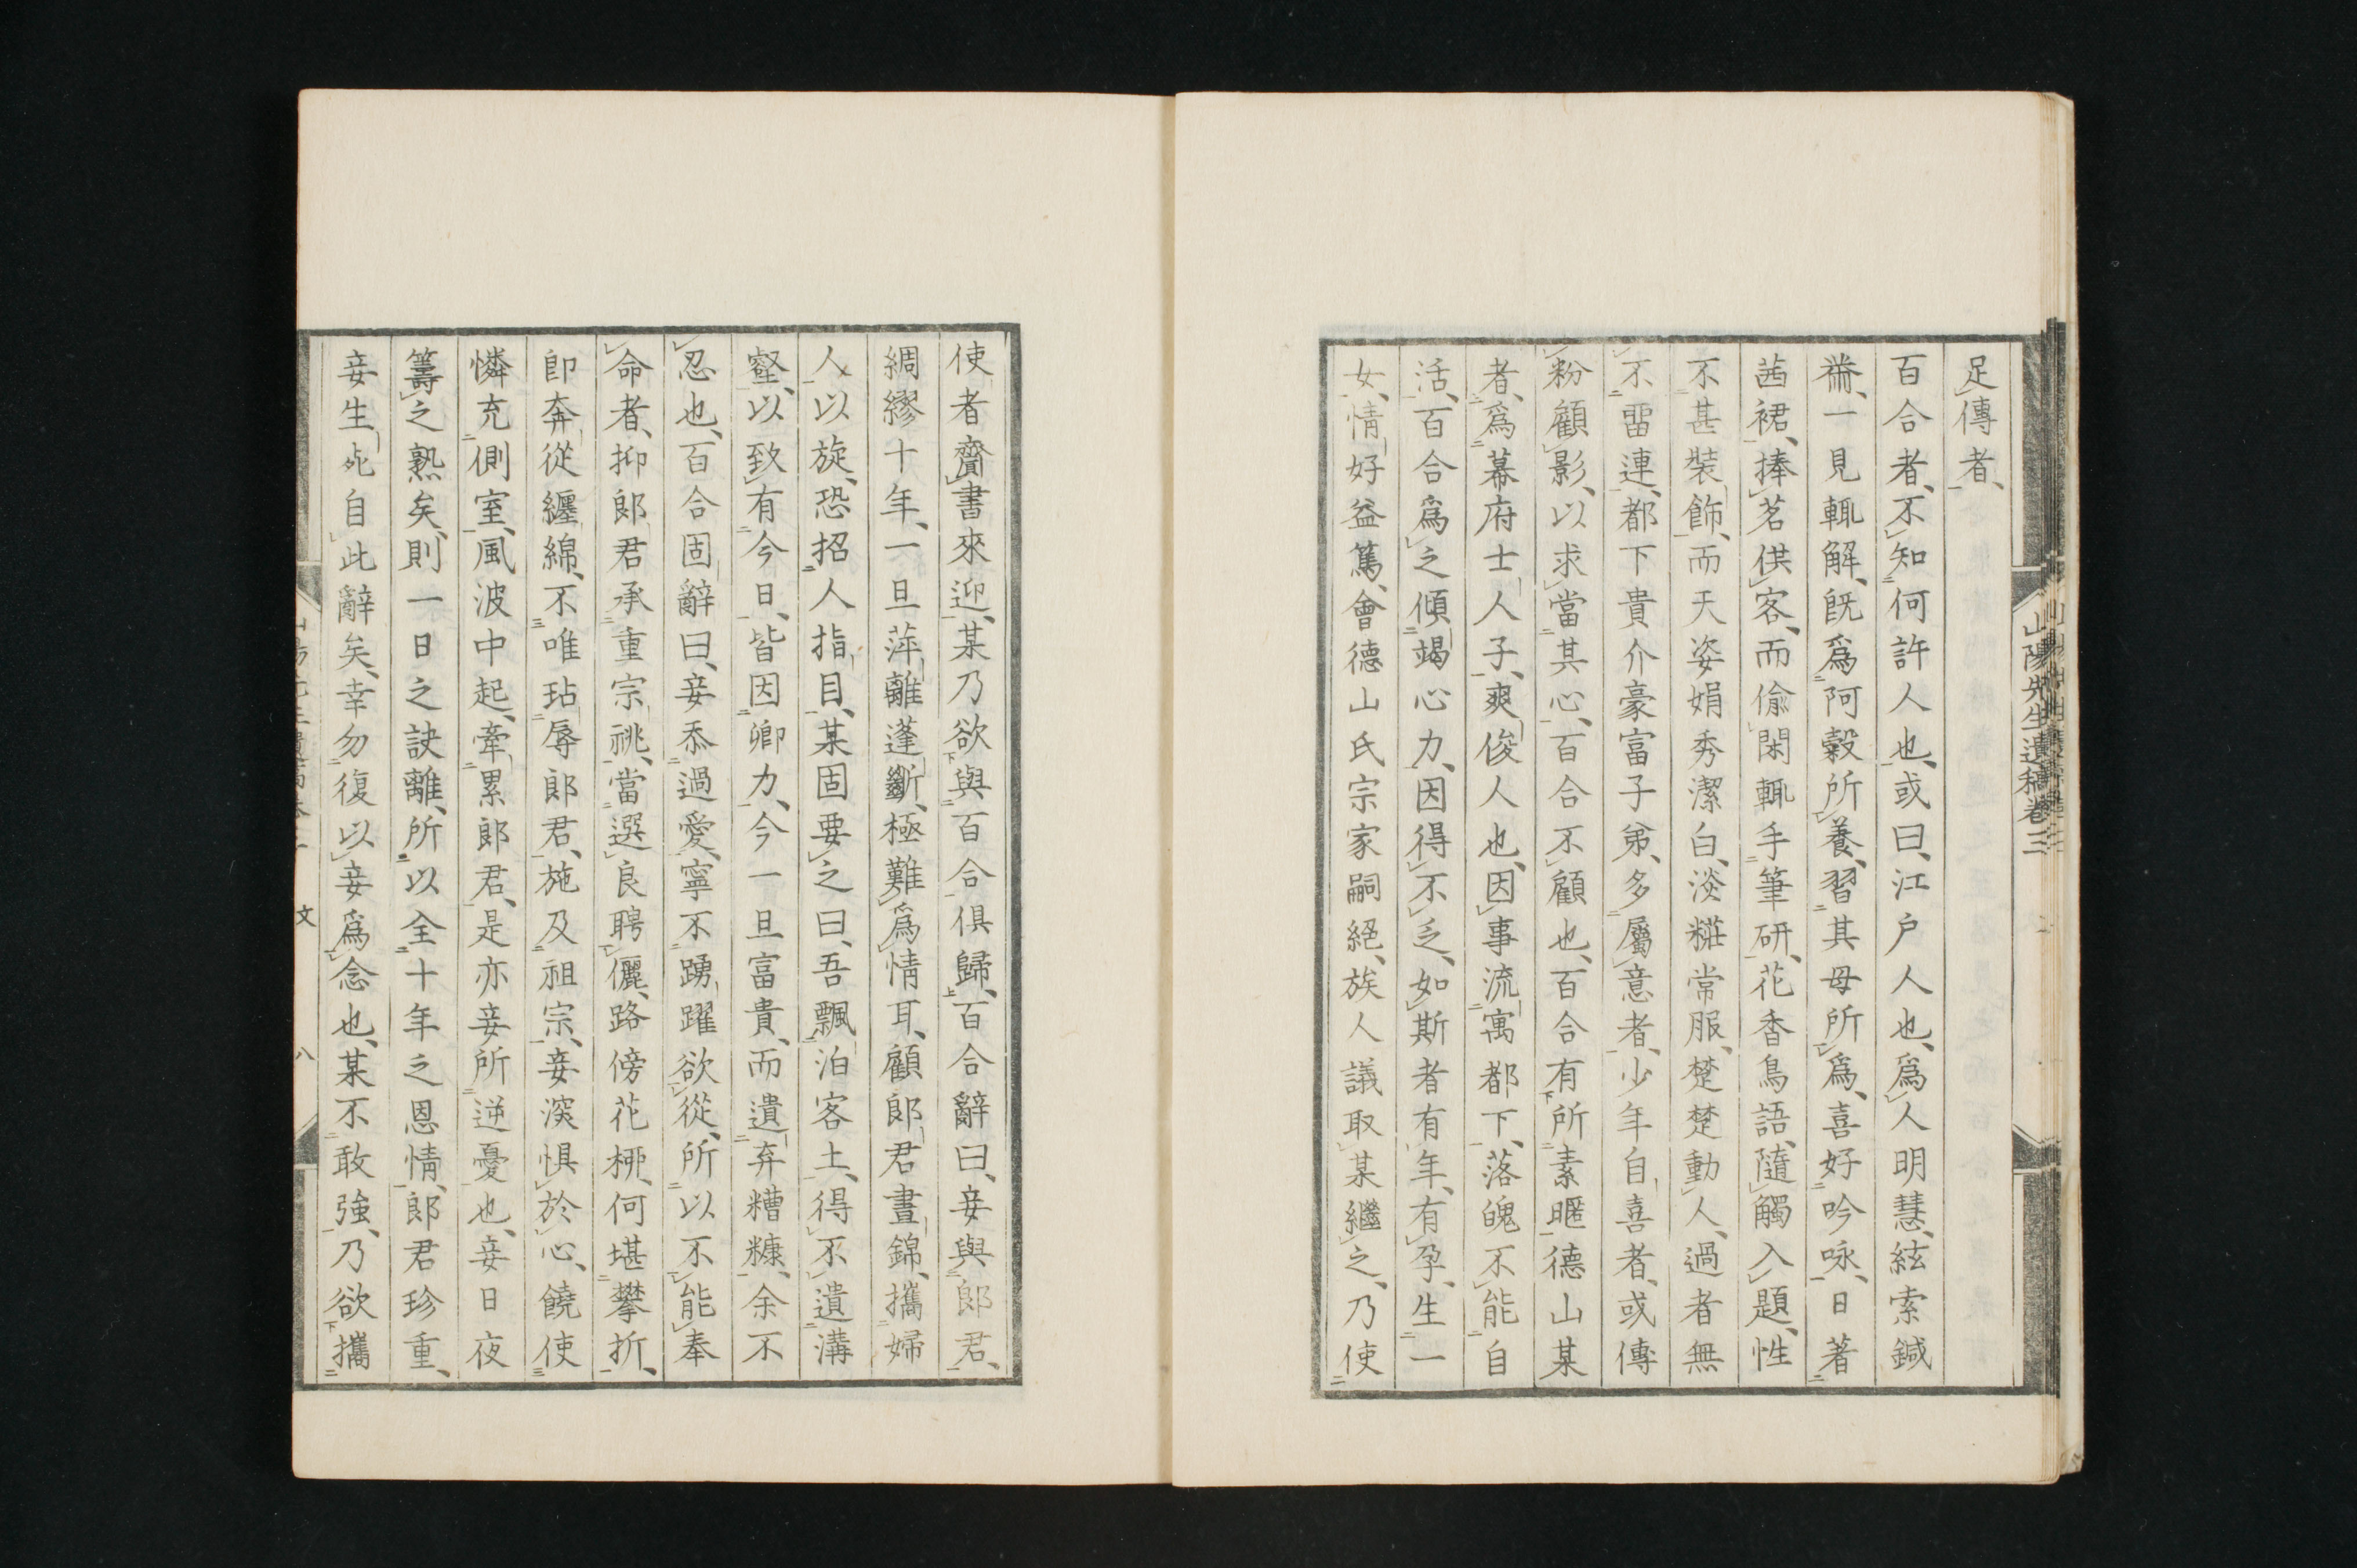 山陽先生遺稿卷三
足傳者、
百合者、不知何許人也、或曰、江戶人也、爲人明慧、絃索鍼
黹、一見輒解、旣爲阿縠所養、習其母所爲、喜好吟咏、日著
茜裙、捧茗供客、而偷閑輒手筆研、花香鳥語、隨觸入題、性
不甚裝飾、而天姿娟秀潔白、淡糚常服、楚楚動人、過者無
不畱連、都下貴介豪富子弟、多屬意者、少年自喜者、或傅
粉顧影、以求當其心、百合不顧也、百合有所素暱德山某
者、爲幕府士人子、爽俊人也、因事流寓都下、落魄不能自
活、百合爲之傾竭心力、因得不乏、如斯者有年、有孕、生一
女、情好益篤、會德山氏宗家嗣絕、族人議取某繼之、乃使
使者齎書來迎、某乃欲與百合俱歸、百合辭曰、妾與郎君、
綢繆十年、一旦萍離蓬斷、極難爲情耳、顧郎君晝錦、攜婦
人以旋、恐招人指目、某固要之曰、吾飄泊客土、得不遺溝
壑、以致有今日、皆因卿力、今一旦富貴、而遺弃糟糠、余不
忍也、百合固辭曰、妾忝過愛、寧不踴躍欲從、所以不能奉
命者、抑郎君承重宗祧、當選良聘儷、路傍花柳、何堪攀折、
卽奔從纏綿、不唯玷辱郎君、施及祖宗、妾深惧於心、饒使
憐充側室、風波中起、牽累郎君、是亦妾所逆憂也、妾日夜
籌之熟矣、則一日之訣離、所以全十年之恩情、郎君珍重、
妾生死自此辭矣、幸勿復以妾爲念也、某不敢強、乃欲攜
文 八